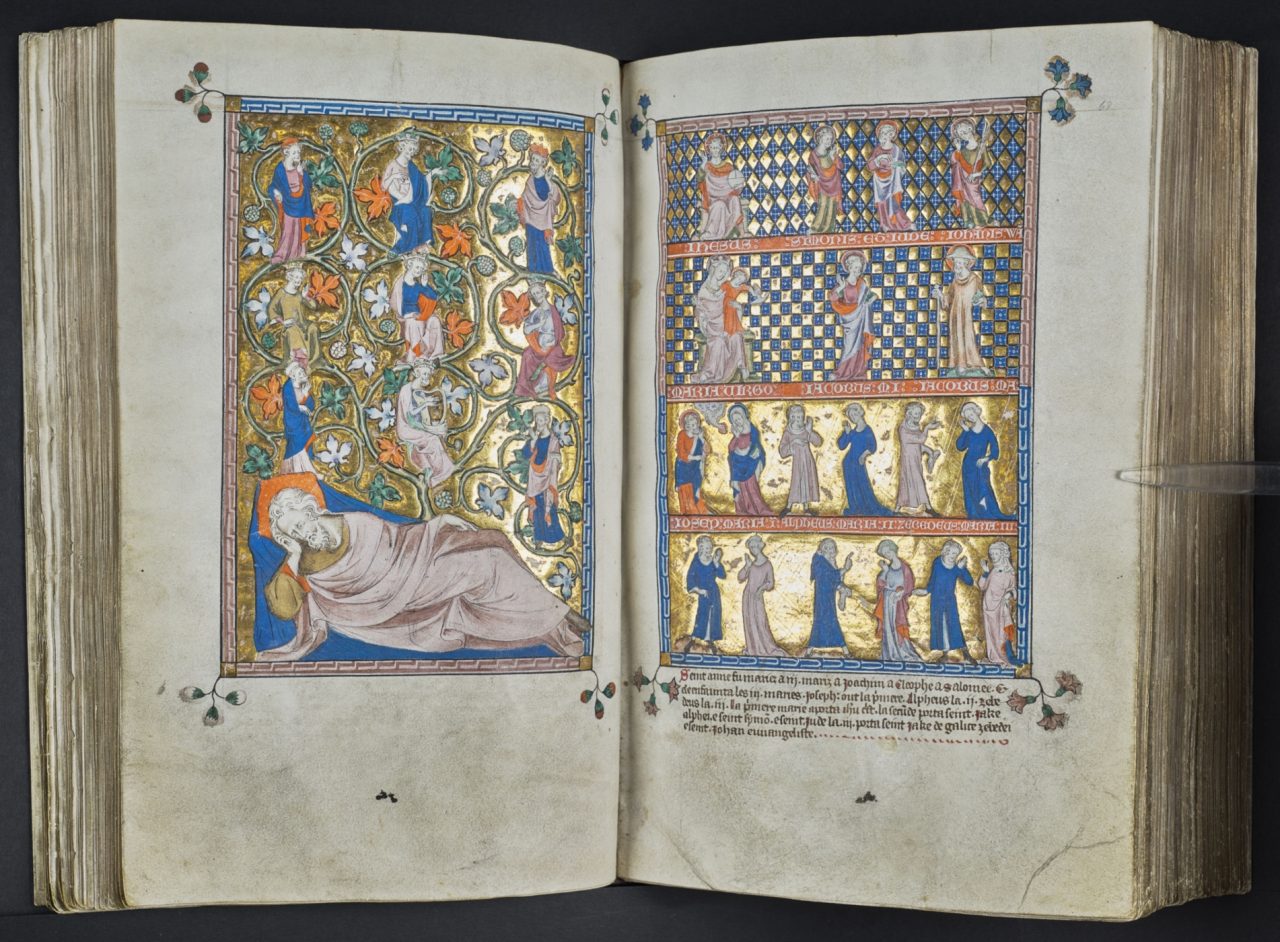 68
IHESUS: SIMONIS: ET: IUDE: IOHANIS: WA
MARIA: UIRGO: IACOBUS: MI: IACOBUS: MA
IOSEP: MARIA: I: ALPHEUS: MARIA: II: ZEBEDEUS: MARIA: III
Seint anne fu marie a .iij. mariz a Joachim, a Cleophe a Salomee. E
de ces .iij. maries. Joseph out la p'mere. Alpheus la .ij. zebe
deus la .iij. La p'mere marie aporta ihu c'st. la secunde porta seint Jake
alphei. e seint symon. e seint Jude la .iij. porta seint Jake de galice zebedei
e seint Johan euuangeliste.